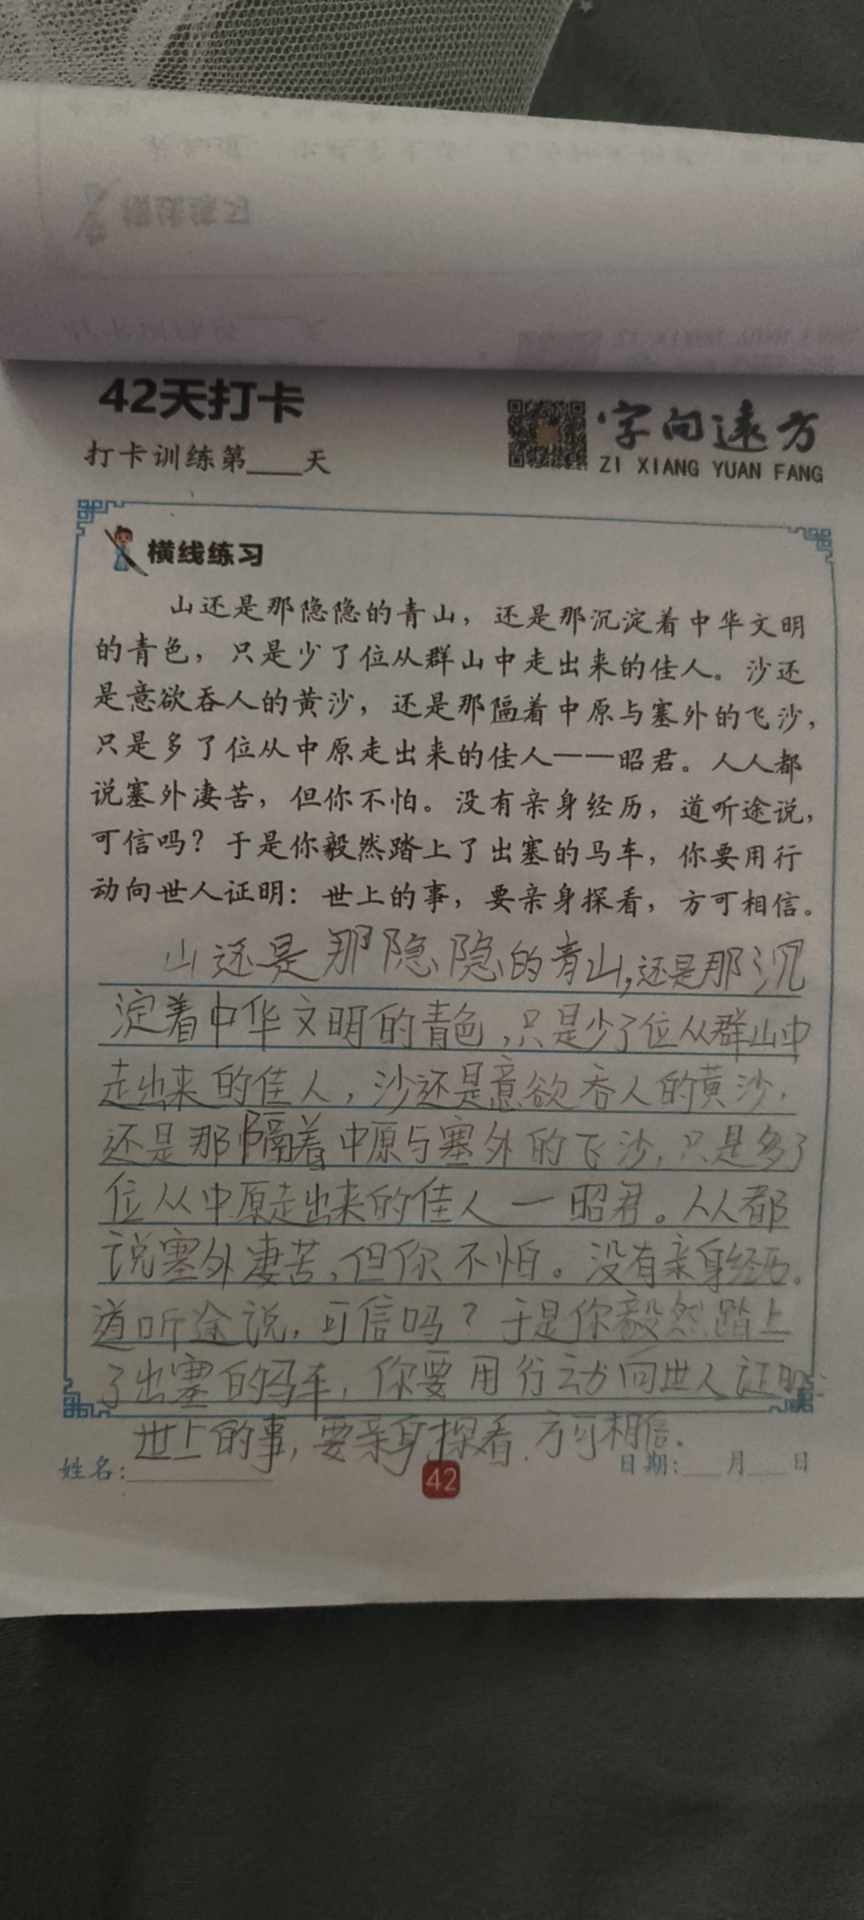 42天打卡
字向远方
打卡训练第___天
ZI XIANG YUAN FANG
横线练习
山还是那隐隐的青山，还是那沉淀着中华文明
的青色，只是少了位从群山中走出来的佳人。沙还
是意欲吞人的黄沙，还是那隔着中原与塞外的飞沙，
只是多了位从中原走出来的佳人——昭君。人人都
说塞外凄苦，但你不怕。没有亲身经历，道听途说，
可信吗？于是你毅然踏上了出塞的马车，你要用行
动向世人证明：世上的事，要亲身探看，方可相信。
山还是那隐隐的青山，还是那沉
淀着中华文明的青色，只是少了位从群山中
走出来的佳人，沙还是意欲吞人的黄沙，
还是那隔着中原与塞外的飞沙，只是多了
位从中原走出来的佳人—昭君。人人都
说塞外凄苦，但你不怕。没有亲身经历。
道听途说，可信吗？于是你毅然踏上
了出塞的马车，你要用行动向世人证明：
世上的事，要亲身探看．方可相信．
姓名：
42
日期：___月___日